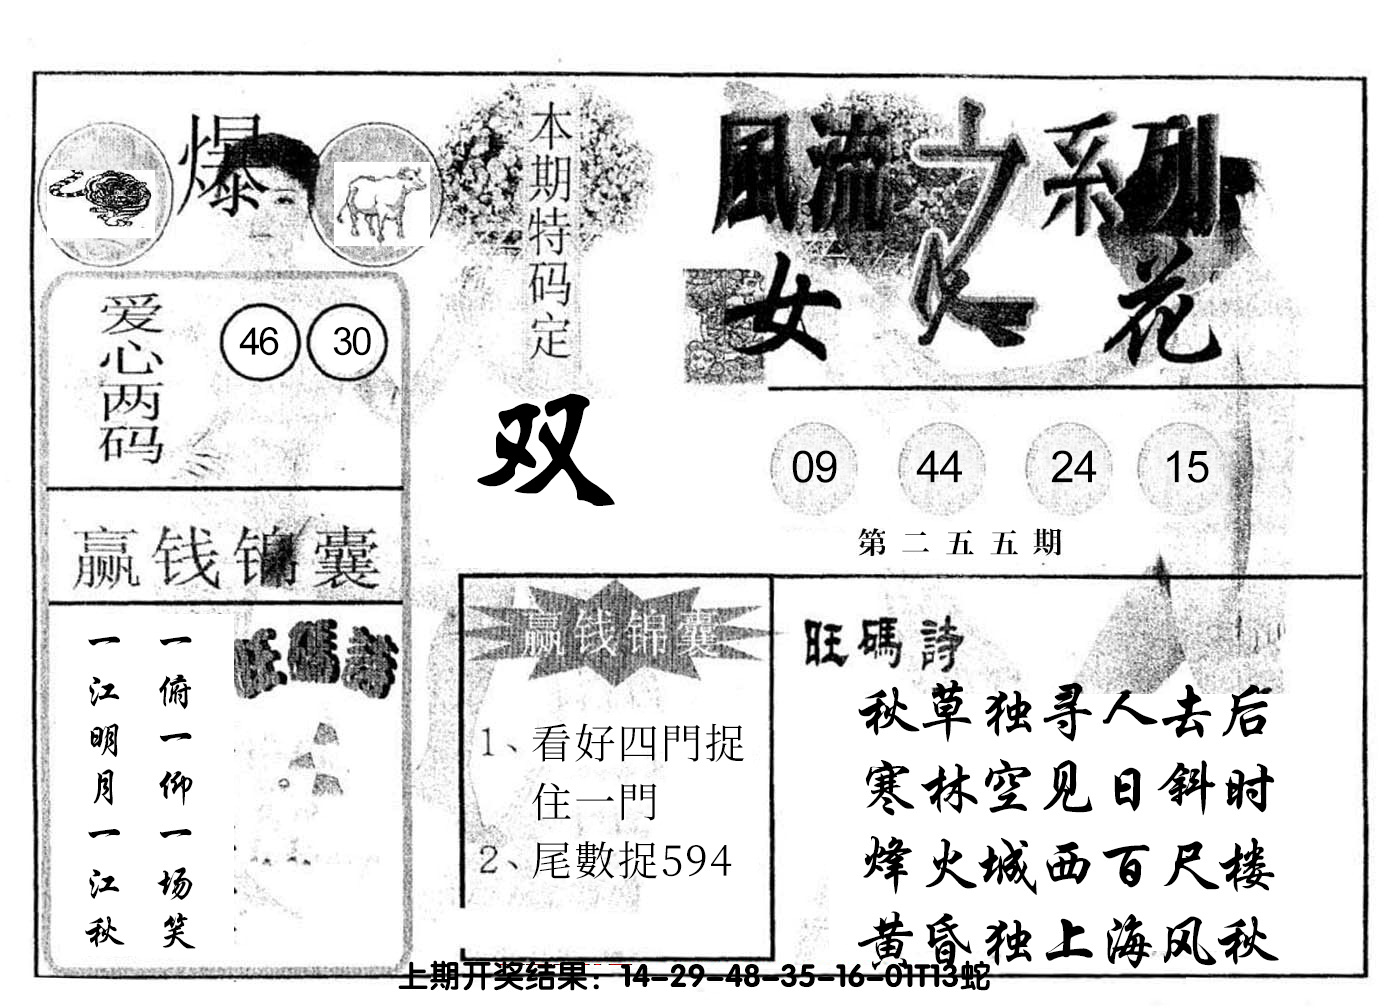 爆
本期特码定
双
風流之系列
女人花
爱心两码
46 30
09 44 24 15
第二五五期
赢钱锦囊
一俯一仰一场笑
一江明月一江秋
旺碼詩
赢钱锦囊
1、看好四門捉
住一門
2、尾數捉594
旺碼詩
秋草独寻人去后
寒林空见日斜时
烽火城西百尺楼
黄昏独上海风秋
上期开奖结果：14-29-48-35-16-01T13蛇